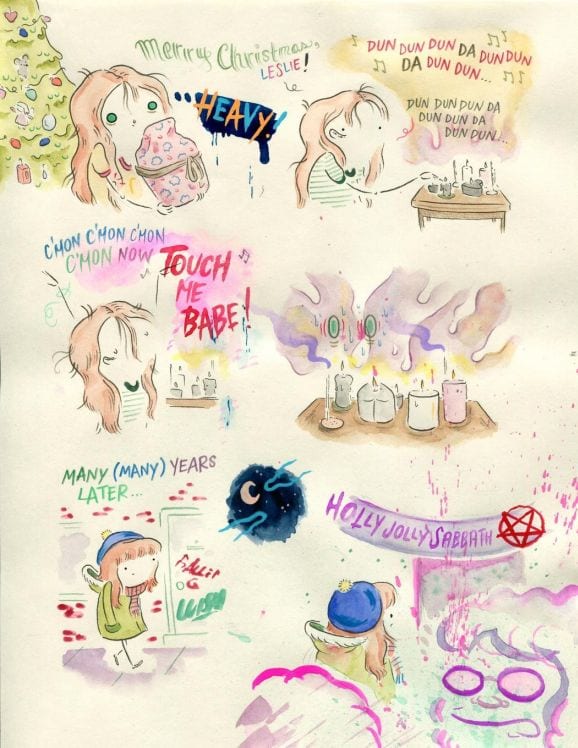 Merry Christmas,
LESLIE!
HEAVY!
DUN DUN DUN DA DUN DUN
DA DUN DUN...
DUN DUN DUN DA
DUN DUN DA
DUN DUN...
C'MON C'MON C'MON
C'MON NOW
TOUCH
ME
BABE!
MANY (MANY) YEARS
LATER...
HOLLY JOLLY SABBATH